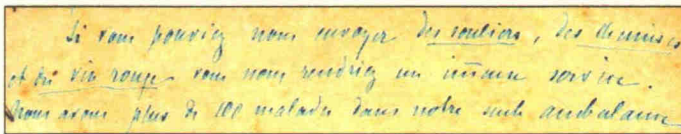 Si vous pouviez nous envoyer des souliers, des chemises
et du vin rouge vous nous rendriez un immense service.
Nous avons plus de 100 malades dans notre seule ambulance